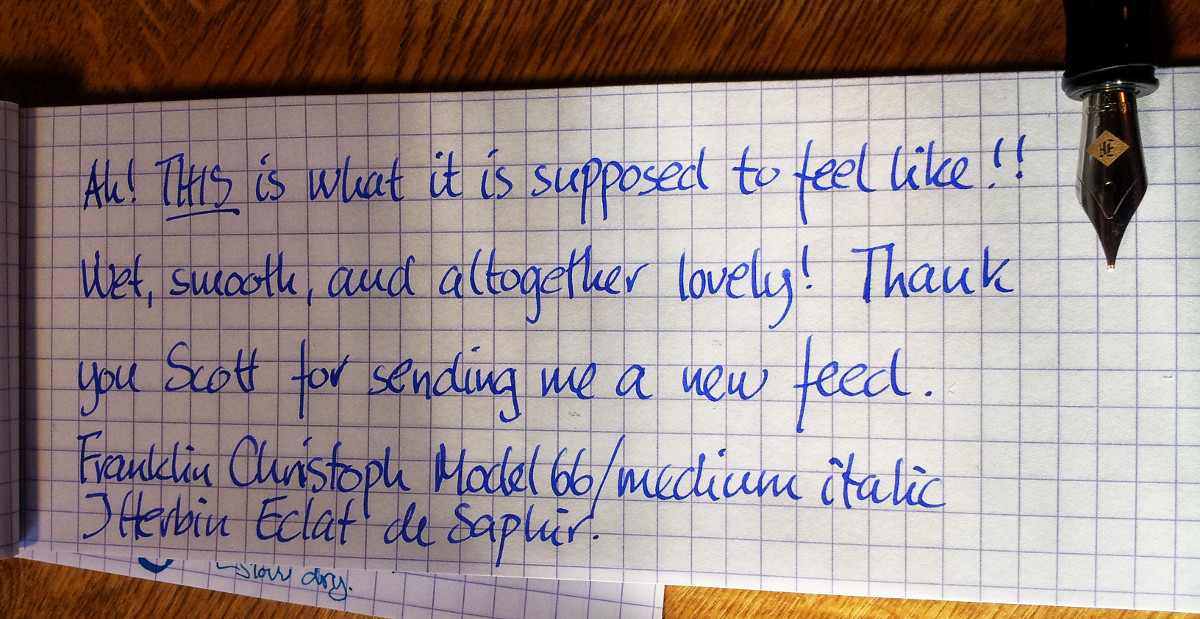 Ah! THIS is what it is supposed to feel like!!
Wet, smooth, and altogether lovely! Thank
you Scott for sending me a new feed.
Franklin Christoph Model 66/medium italic
J Herbin Eclat de Saphir.
slow dry.